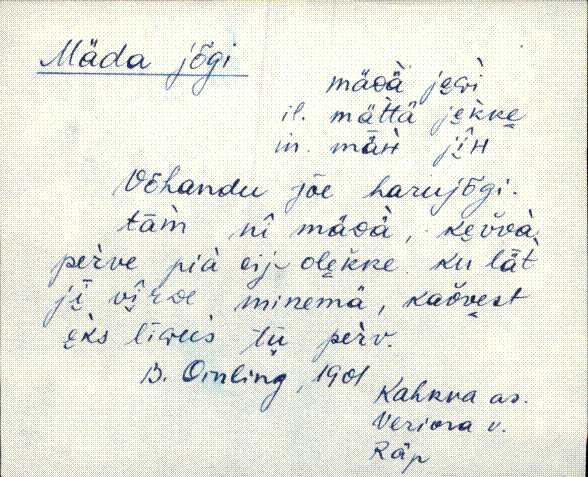 Mäda jõgi
mäᴅà je̮ɢì
il. mättä je̮kke̮
in. mä̀н jī̮н
Võhandu jõe harujõgi.
tä̀m nî mäᴅà, ke̮vvà
perve pià eij‿ole̮kke ku lät
jī̮ vīrᴅe minemä, kaõve̮st
e̮ks līɢeis tū perv.
B. Oinling, 1901
Kahkva as.
Veriora v.
Räp